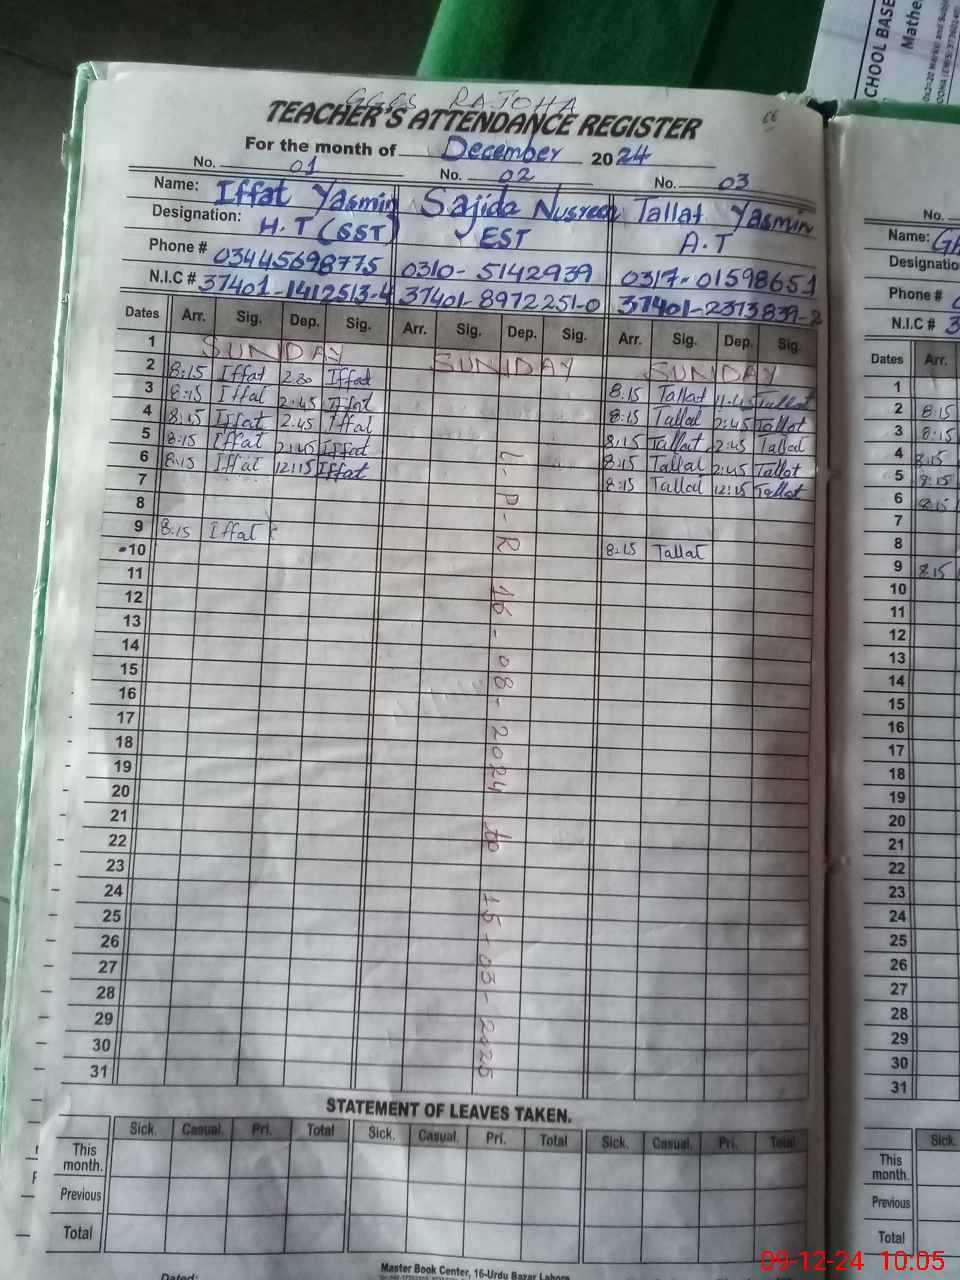 CHOOL BASE
Mathe
GGGS RAJOHA
TEACHER'S ATTENDANCE REGISTER
66
For the month of December 2024
No. 01 No. 02 No. 03
Name: Iffat Yasmin Sajida Nusreen Tallat Yasmin
Designation: H.T (SST) EST A.T
Phone # 03445698775 0310-5142939 0317-01598651
N.I.C # 37401-1412513-4 37401-8972251-0 37401-2373839-2
Dates Arr. Sig. Dep. Sig. Arr. Sig. Dep. Sig. Arr. Sig. Dep. Sig.
1 SUNDAY SUNDAY SUNDAY
2 8:15 Iffat 2:30 Iffat 8:15 Tallat 11:45 Tallat
3 8:15 Iffat 2:45 Iffat 8:15 Tallat 2:45 Tallat
4 8:15 Iffat 2:45 Iffat 8:15 Tallat 2:45 Tallat
5 8:15 Iffat 2:45 Iffat 8:15 Tallat 2:45 Tallat
6 8:15 Iffat 12:15 Iffat 8:15 Tallat 12:15 Tallat
7
8
9 8:15 Iffat 8:15 Tallat
10
11
12
13
14
15
16
17
18
19
20
21
22
23
24
25
26
27
28
29
30
31
L-P-R 16-08-2024 to 15-03-2025
STATEMENT OF LEAVES TAKEN.
Sick. Casual. Pri. Total Sick. Casual. Pri. Total Sick. Casual. Pri. Total
This month.
Previous
Total
Master Book Center, 16-Urdu Bazar Lahore
Dated:
No.
Name:
Designatio
Phone #
N.I.C # 3
Dates Arr.
1
2 8:15
3 8:15
4 8:15
5 8:15
6 8:15
7
8
9 8:15
10
11
12
13
14
15
16
17
18
19
20
21
22
23
24
25
26
27
28
29
30
31
Sick.
This month.
Previous
Total
09-12-24 10:05